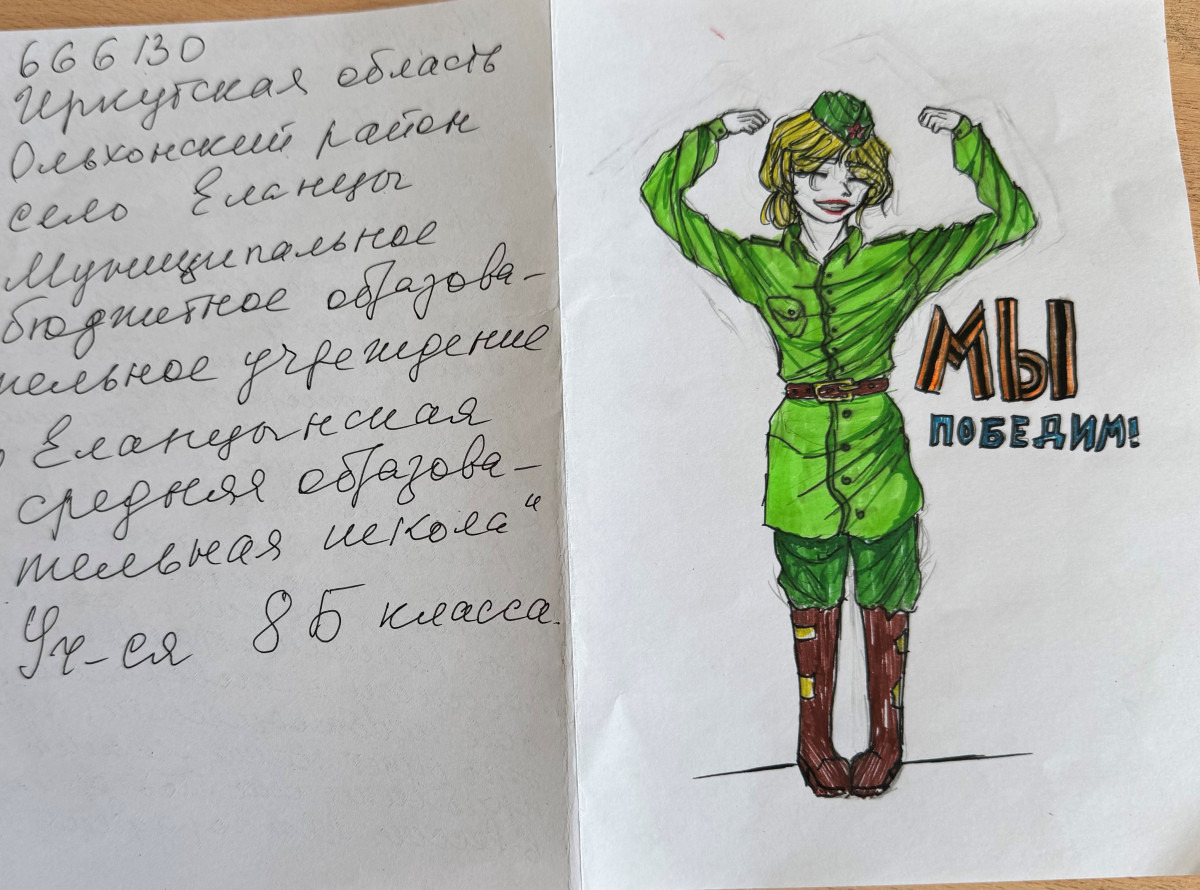 666130
Иркутская область
Ольхонский район
село Еланцы
Муниципальное
бюджетное образова-
тельное учреждение
„Еланцынская
средняя образова-
тельная школа“
Уч-ся 8Б класса.
МЫ
ПОБЕДИМ!